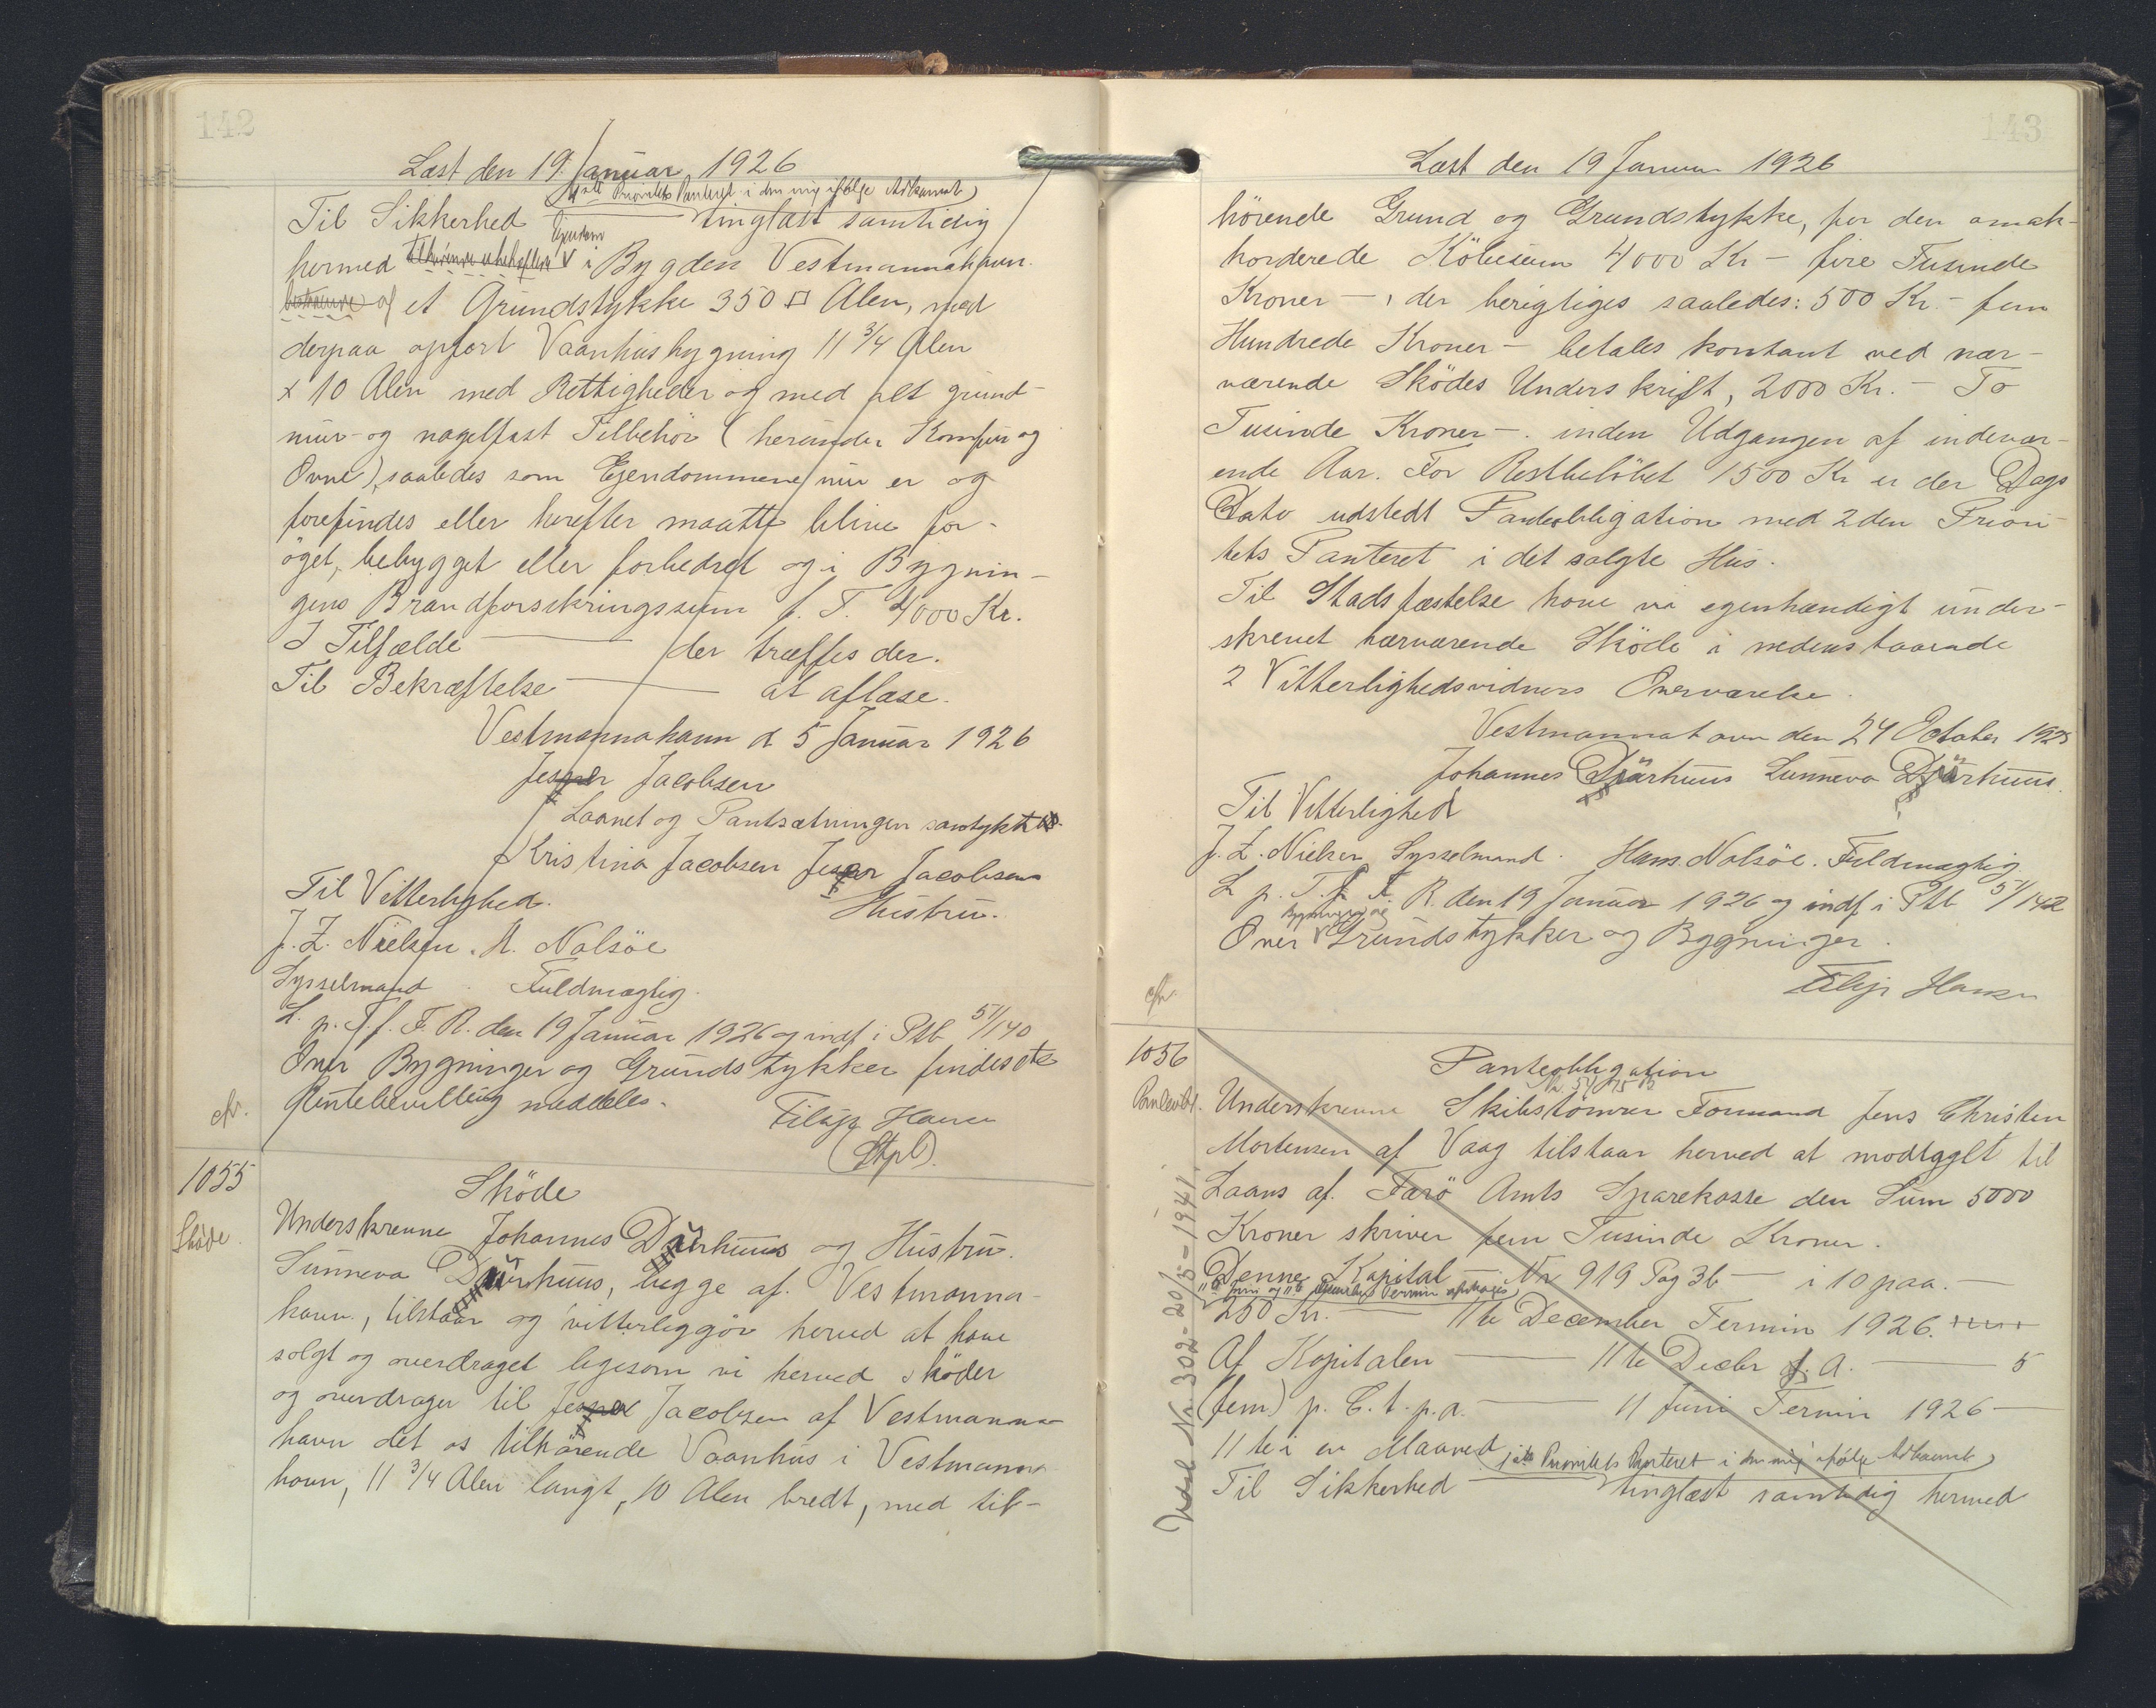 142
Læst den 19 Januar 1926
1ste Prioritets Panteret i den mig ifølge Adkomst
Til Sikkerhed — tinglæst samtidig
hermed tilhørende ubehæftede Ejendom i Bygden Vestmannahavn
bestaaende af et Grundstykke 350 □ Alen, med
derpaa opført Vaanhusbygning 11 3/4 Alen
x 10 Alen med Rettigheder og med alt grund-
mur- og nagelfast Tilbehör (herunder Komfur og
Ovne), saaledes som Ejendommene nu er og
forefindes eller herefter maatte blive for-
öget, bebygget eller forbedret og i Bygnin-
gens Brandforsikringssum f. T. 4000 Kr.
I Tilfælde — der træffes der.
Til Bekræftelse — at aflæse.
Vestmannahavn d 5 Januar 1926
Jesper Jacobsen
Laanet og Pantsætningen samtykkes
Kristina Jacobsen Jesper Jacobsens
Hustru.
Til Vitterlighed.
J. Z. Nielsen. H. Nolsöe
Sysselmand. Fuldmægtig.
L. p. T. f. F. R. den 19 Januar 1926 og indf i Ptb 51/140
Over Bygninger og Grundstykker findes etc
Rentebevilling meddeles.
cfr.
Filip Hansen
(Stpl)
1055
Sköde
Sköde.
Underskrevne Johannes Djurhuus og Hustru
Sunneva Djurhuus, begge af Vestmanna-
havn, tilstaar og vitterliggör herved at have
solgt og overdraget ligesom vi herved sköder
og overdrager til Jesper Jacobsen af Vestmanna-
havn det os tilhörende Vaanhus i Vestmanna-
havn, 11 3/4 Alen langt, 10 Alen bredt, med til-
143
Læst den 19 Januar 1926
hörende Grund og Grundstykke, for den omak-
horderede Köbesum 4000 Kr – fire Tusinde
Kroner –, der berigtiges saaledes: 500 Kr. – fem
Hundrede Kroner – betales kontant ved nær-
værende Sködes Underskrift, 2000 Kr. – To
Tusinde Kroner –. inden Udgangen af indevær-
ende Aar. For Restbelöbet 1500 Kr er der Dags
Dato udstedt Panteobligation med 2den Priori-
tets Panteret i det solgte Hus.
Til Stadsfæstelse have vi egenhændigt under-
skrevet nærværende Sköde i nedenstaaende
2 Vitterlighedsvidners Overværelse.
Vestmannahavn den 24 October 1925
Johannes Djurhuus Sunneva Djurhuus.
Til Vitterlighed
J. Z. Nielsen Sysselmand. Hans Nolsöe. Fuldmægtig
L p. T. f. F. R. den 19 Januar 1926 og indf i Ptb 51/142
Over Bygninger og Grundstykker og Bygninger.
cfr.
Filip Hansen
1056
Panteobligation
Nr. 51/75 B
Underskrevne Skibstömrer Formand Jens Christen
Mortensen af Vaag tilstaar herved at modtaget til
Laans af Færö Amts Sparekasse den Sum 5000
Kroner skriver fem Tusinde Kroner.
Denne Kapital — Nr 919 Pag 36 — i 10 paa. —
250 Kr. — 11te December Termin 1926.
Af Kapitalen — 11te Decbr f. A. — 5
(fem) p. C. t. p. a. — 11 Juni Termin 1926 —
11te i en Maaned
1ste Prioritets Panteret i den mig ifölge Adkomst
Til Sikkerhed — tinglæst samtidig hermed
Nr. 302 - 20/5 - 1941.